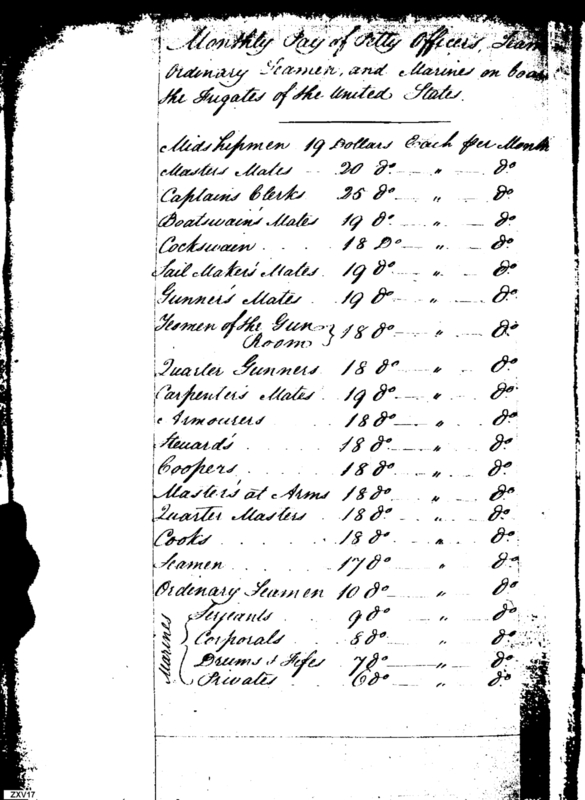 Monthly Pay of Petty Officers, Seam
Ordinary Seamen, and Marines on boar
the Frigates of the United States.
Midshipmen 19 Dollars Each per Month
Masters Mates .. 20 do — " — do
Captains Clerks 25 do — " — do
Boatswain's Mates 19 do — " — do
Cockswain .... 18 Do — " — do
Sail Maker's Mates 19 do — " — do
Gunner's Mates .. 19 do — " — do
Yeomen of the Gun Room } 18 do — " — do
Quarter Gunners 18 do — " — do
Carpenter's Mates 19 do — " — do
Armourers .... 18 do — " — do
Steuard's .... 18 do — " — do
Coopers .... 18 do — " — do
Master's at Arms 18 do — " — do
Quarter Masters . 18 do — " — do
Cooks .... 18 do — " — do
Seamen .... 17 do — " — do
Ordinary Seamen 10 do — " — do
Marines { Serjeants .. 9 do — " — do
Corporals .. 8 do — " — do
Drums & Fifes 7 do — " — do
Privates .. 6 do — " — do
ZXV17